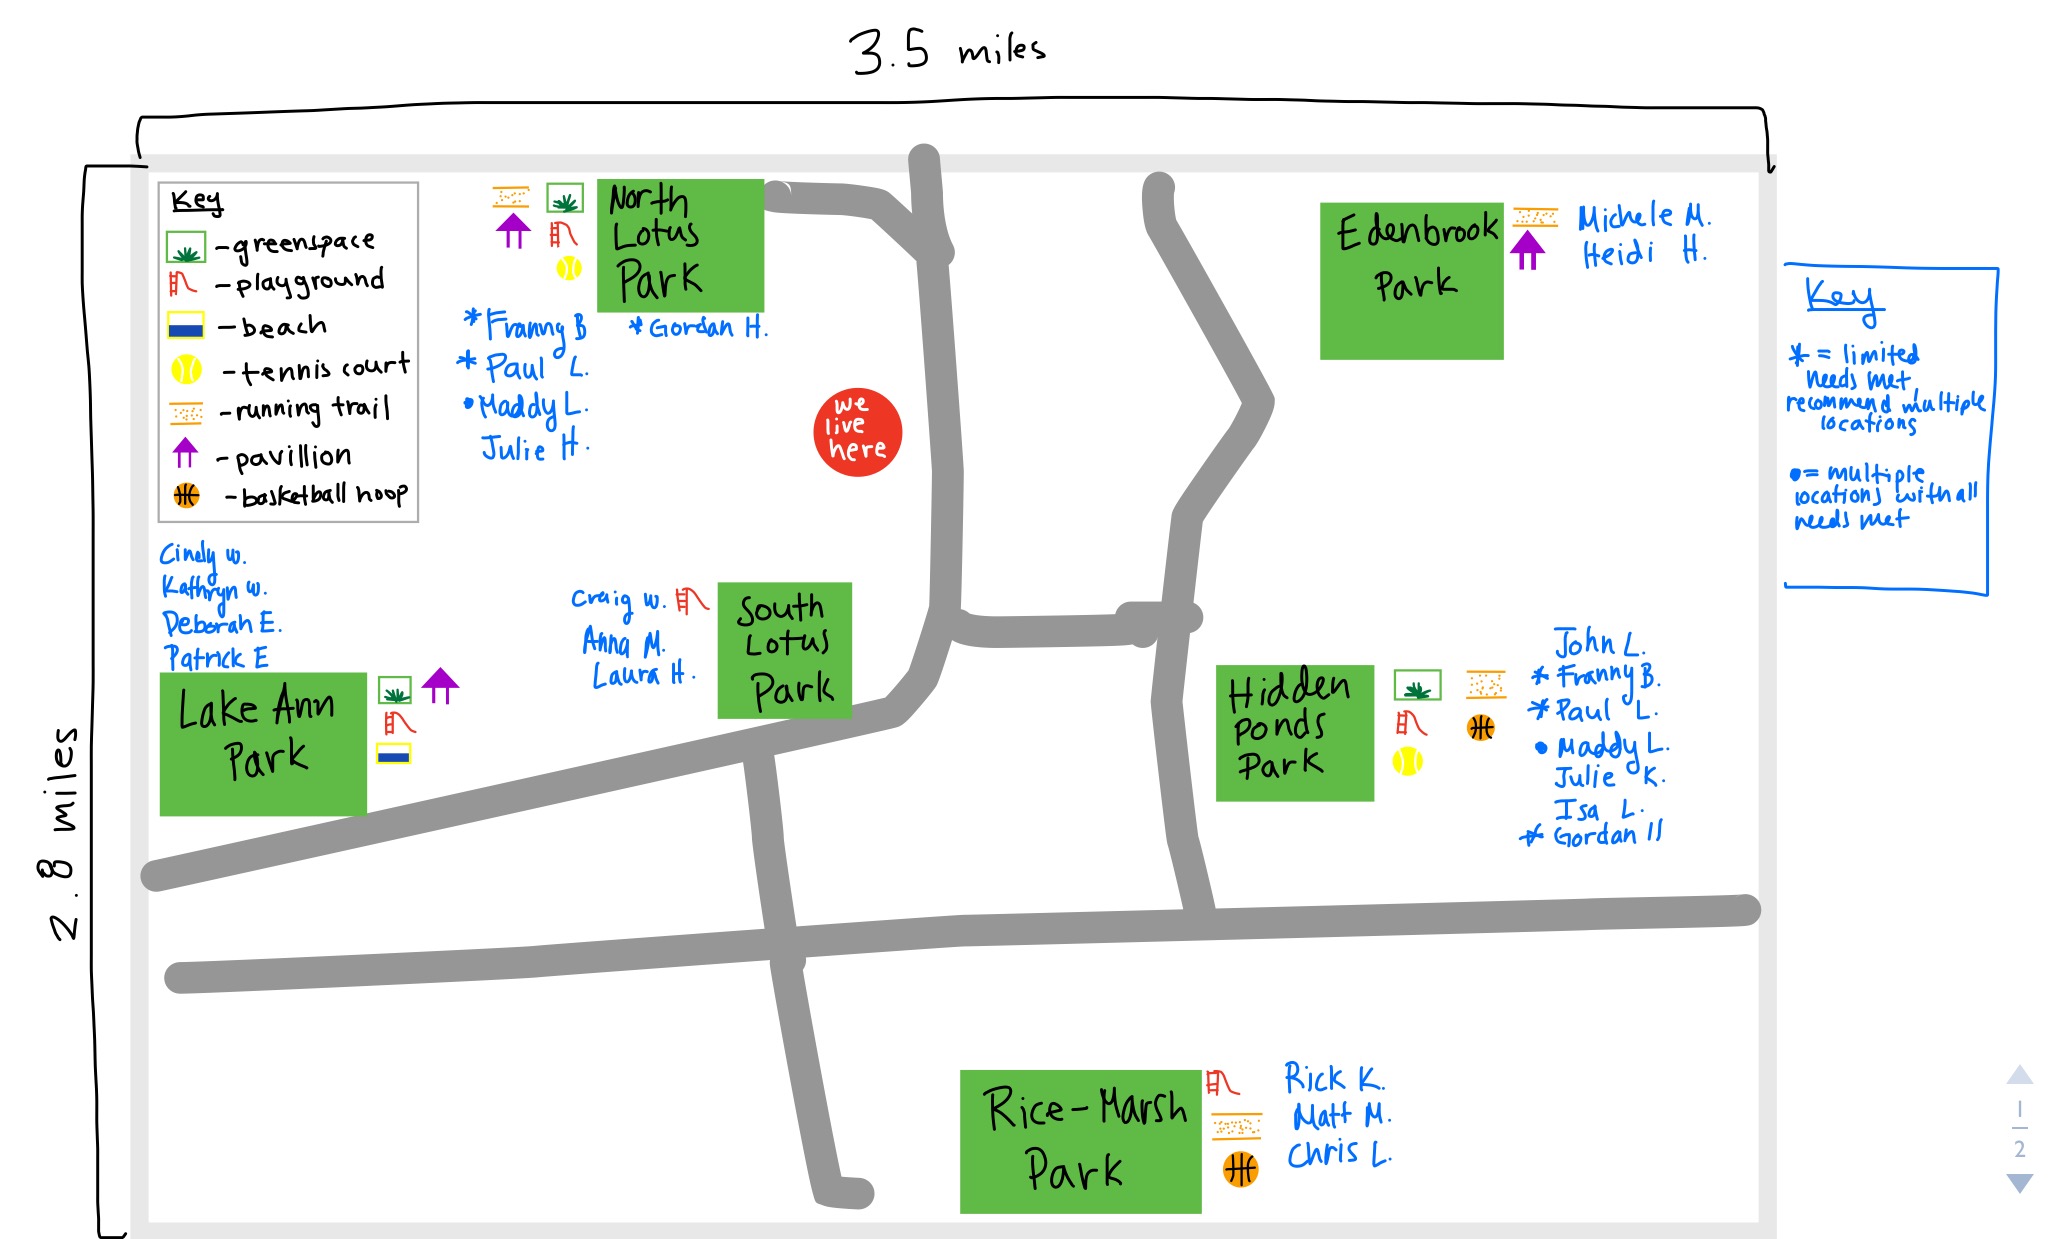 3.5 miles
2.8 miles
Key
-greenspace
-playground
-beach
-tennis court
-running trail
-pavillion
-basketball hoop
North
Lotus
Park
*Franny B
*Paul L.
•Maddy L.
Julie H.
*Gordan H.
we
live
here
Edenbrook
Park
Michele M.
Heidi H.
Key
* = limited
needs met,
recommend multiple
locations
•= multiple
locations with all
needs met
Cindy W.
Kathryn W.
Deborah E.
Patrick E
Lake Ann
Park
Craig W.
Anna M.
Laura H.
South
Lotus
Park
Hidden
Ponds
Park
John L.
*Franny B.
*Paul L.
•Maddy L.
Julie K.
Isa L.
*Gordan H
Rice-Marsh
Park
Rick K.
Matt M.
Chris L.
1
2